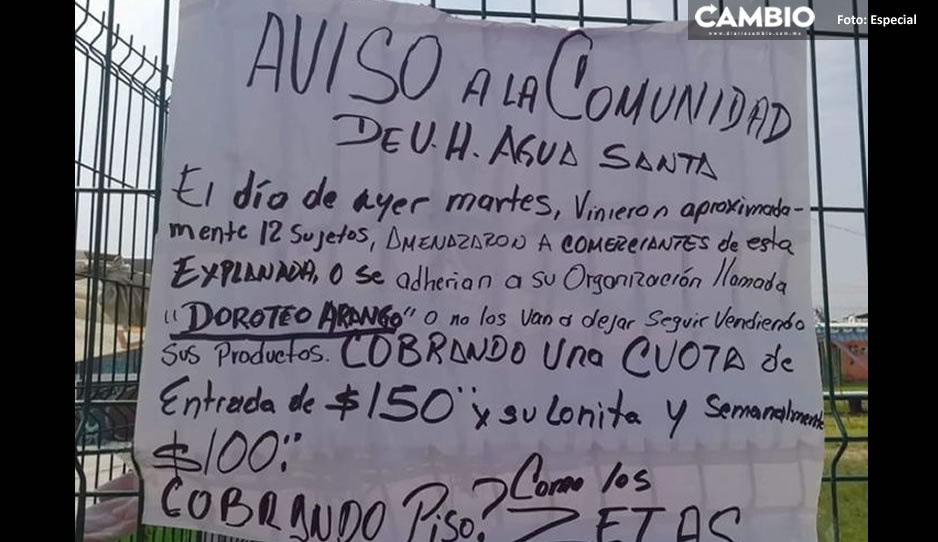 CAMBIO
www.diariocambio.com.mx
Foto: Especial
AVISO A LA COMUNIDAD
DE U. H. AGUA SANTA
El día de ayer martes, Vinieron aproximada-
mente 12 Sujetos, AMENAZARON A COMERCIANTES de esta
EXPLANADA, O se adherian a su Organización llamada
"DOROTEO ARANGO" o no los van a dejar Seguir Vendiendo
Sus Productos. COBRANDO Una CUOTA de
Entrada de $150" x su Lonita y Semanalmente
$100:"
COBRANDO Piso? Como los
ZETAS